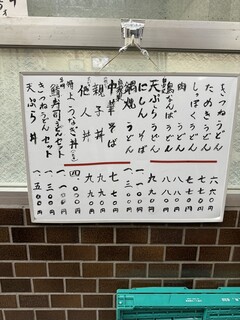 きつねうどん 六六〇円
たぬきうどん 七七〇円
しっぽくうどん 七七〇円
肉うどん 八八〇円
鳥なんばうどん 八八〇円
天ぷらうどん
にしんそば
鍋焼うどん 一、三〇〇円
中華そば 七七〇円
親子丼 九九〇円
他人丼 九九〇円
特上うなぎ丼
鯖寿司うどんセット 一、一〇〇円
きつねうどんセット 一、三〇〇円
天ぷら丼 一、五〇〇円